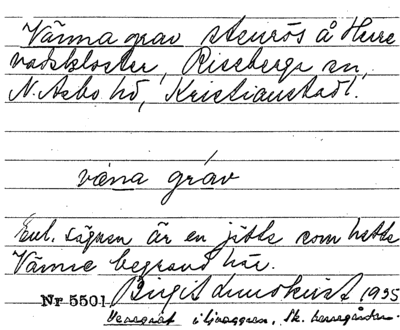 Värma grav stenrös å Herre
vadskloster, Riseberga sn,
N. Åsbo hd, Kristianstads l.
väna gráv
Enl. sägnen är en jätte som hette
Värme begravd här.
Nr 5501 Birgit Lundkvist 1935